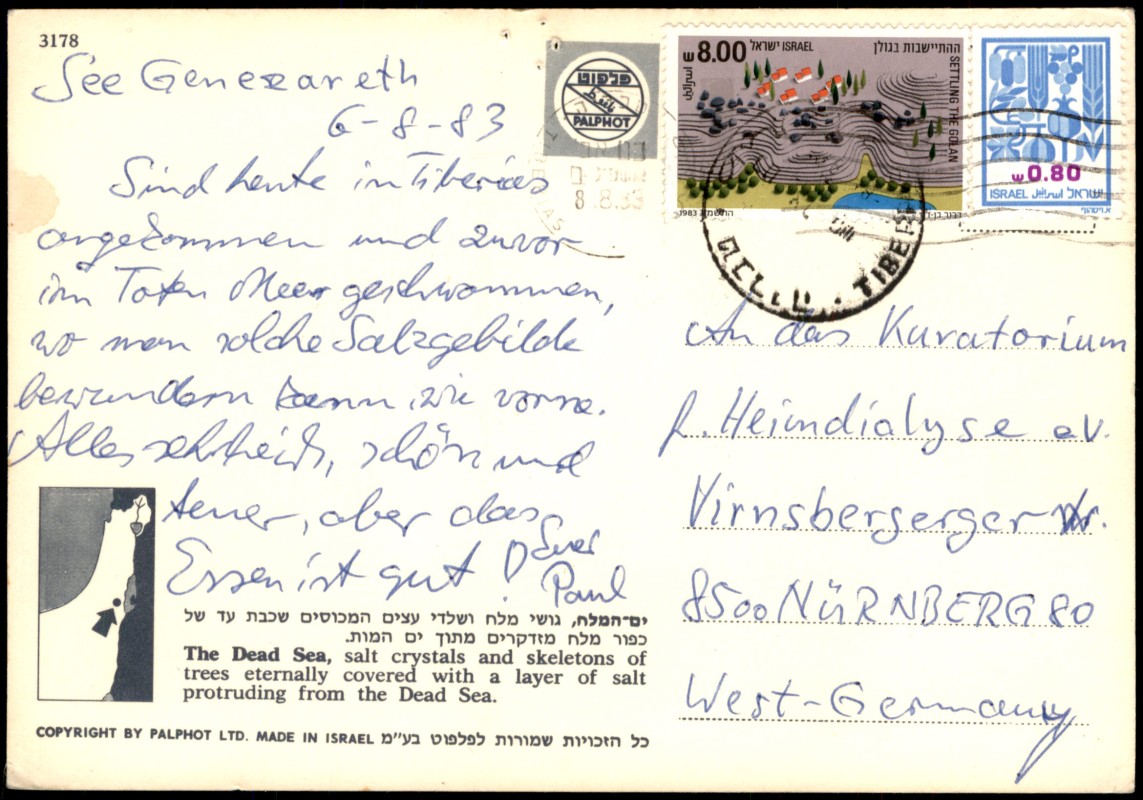 3178
See Genezareth
6-8-83
Sind heute in Tiberias
angekommen und zuvor
im Toten Meer geschwommen,
wo man solche Salzgebilde
bewundern kann, wie vorne.
Alles sehr heiß, schön und
teuer, aber das
Essen ist gut!
Euer
Paul
ים-המלח, גושי מלח ושלדי עצים המכוסים שכבת עד של
כפור מלח מזדקרים מתוך ים המות.
The Dead Sea, salt crystals and skeletons of
trees eternally covered with a layer of salt
protruding from the Dead Sea.
COPYRIGHT BY PALPHOT LTD. MADE IN ISRAEL כל הזכויות שמורות לפלפוט בע"מ
פלפוט
PALPHOT
8.8.83
ש8.00
ישראל ISRAEL
ההתיישבות בגולן
اسرائيل
SETTLING THE GOLAN
1983 התשמ"ג
ש0.80
ISRAEL اسرائيل ישראל
TIBER
An das Kuratorium
f. Heimdialyse e.V.
Virnsbergerger
8500 NÜRNBERG 80
West-Germany